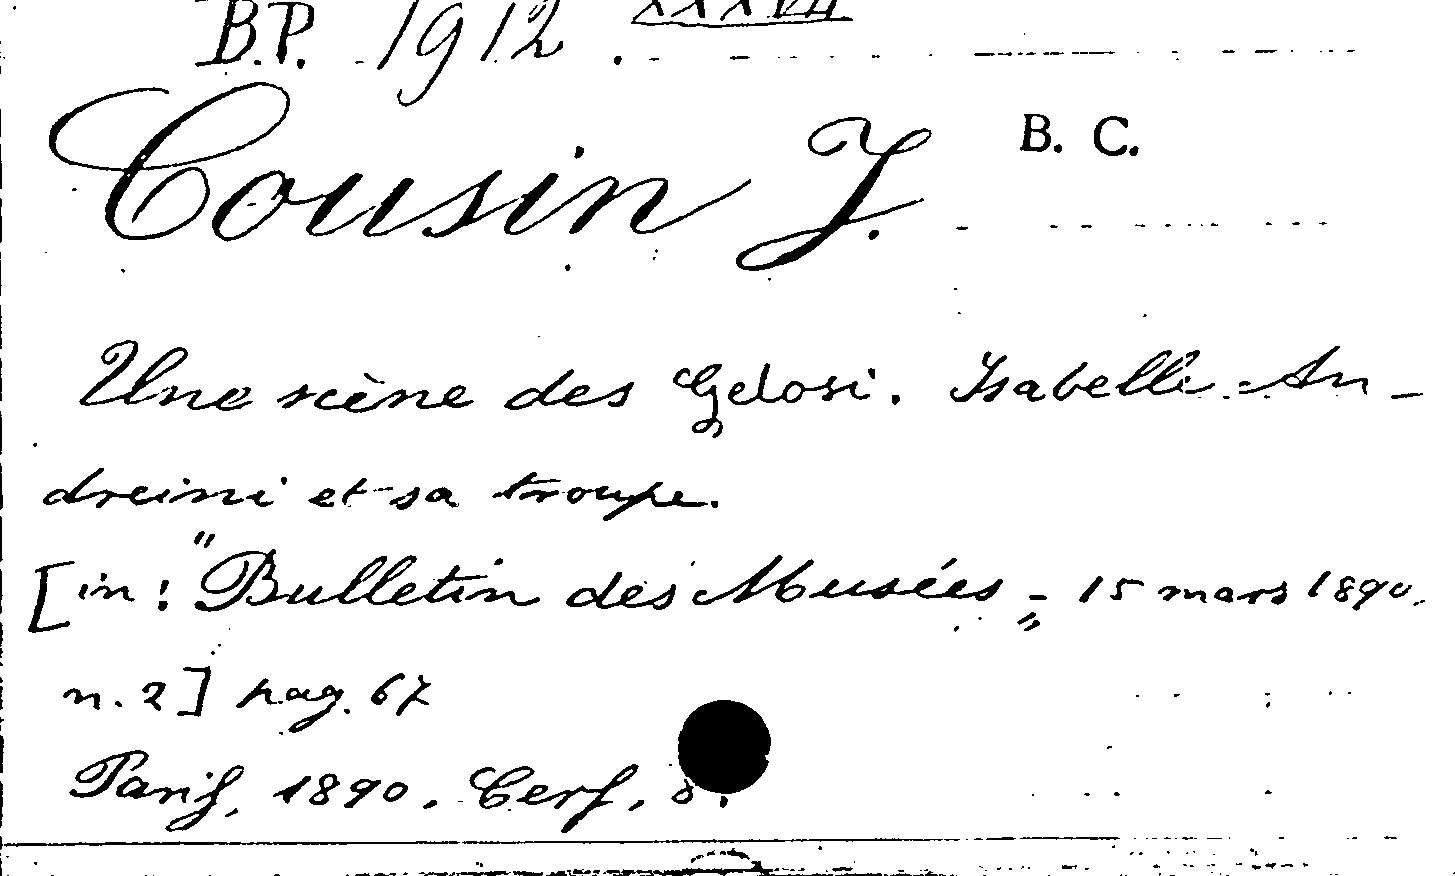 B.P. 1912. XXXVII
Cousin J. B. C.
Une scène des Gelosi. Isabelle An-
dreini et sa troupe.
[in: "Bulletin des Musées„ - 15 mars 1890.
n. 2] pag. 67
Paris, 1890. Cerf, 8.